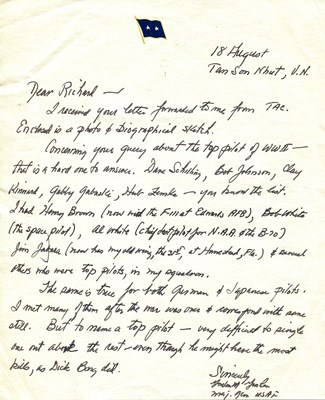 18 August
Tan Son Nhut, V.N.
Dear Richard —
I received your letter forwarded to me from TAC.
Enclosed is a photo & biographical sketch.
Concerning your query about the top pilot of WWII —
that is a hard one to answer. Dave Schilling, Bob Johnson, Clay
Kinnard, Gabby Gabreski, Hub Zemke — you know the list.
I had Henry Brown (now with the F-111 at Edwards AFB), Bob White
(the space pilot), Al White (chief test pilot for N.A.A. & the B-70)
Jim (now has my old wing, the 31st, at Homestead, Fla.) & several
others who were top pilots, in my squadron.
The same is true for both German & Japanese pilots.
I met many of them after the war was over & correspond with some
still. But to name a top pilot — very difficult to single
one out above the rest — even though he might have the most
kills, as Dick Bong did.
Sincerely
Maj. Gen USAF